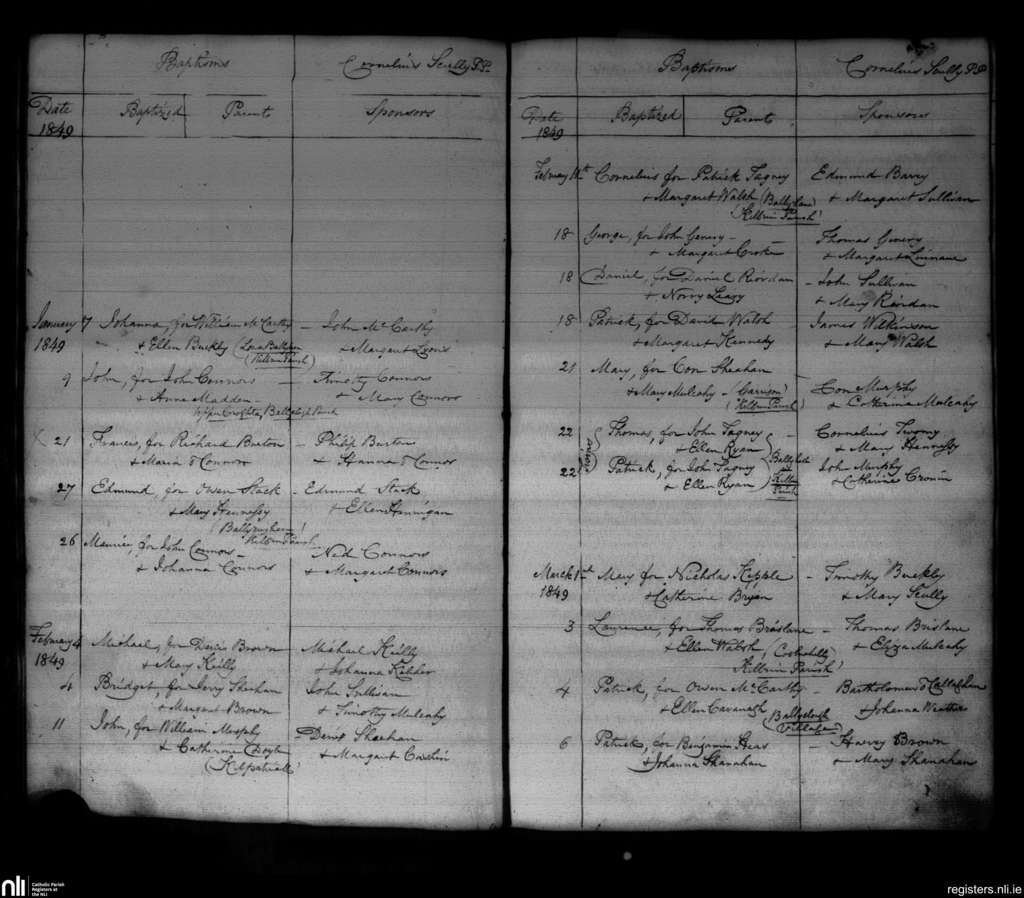 Baptisms Cornelius Scully P.P.
Date 1849 Baptized Parent Sponsors
January 7 Johanna, for William McCarthy – John McCarthy
1849 & Ellen Buckly (Kilbrin Parish) & Margaret
9 John, for John Connors – Timothy Connors
& Anna Madden – & Mary Connors
X 21 Francis, for Richard Burton – Philip Burton
& Maria O'Connor & Hanna O'Connor
27 Edmund, for Owen Stack – Edmund Stack
& Mary Hennessy & Ellen Hannigan
Kilbrin Parish
26 Maurice, for John Connors – Ned Connors
& Johanna Connors & Margaret Connors
February 4 Michael, for Denis Brown Michael Reilly
1849 & Mary Reilly & Johanna
4 Bridget, for Jerry Sheehan John Sullivan
& Margaret Brown & Timothy Mulcahy
11 John, for William Murphy – Denis Sheehan
& Catherine Doyle & Margaret
(Kilpatrick)
Baptisms Cornelius Scully P.P.
Date 1849 Baptized Parent Sponsors
February Cornelius for Patrick Tagney Edmund Barry
& Margaret Walsh & Margaret Sullivan
(Kilbrin Parish)
18 George, for John Genery – Thomas Genery
& Margaret Croker & Margaret Linnane
18 Daniel, for Daniel Riordan – John Sullivan
& Norry Leary & Mary Riordan
18 Patrick, for David Walsh – James Wilkinson
& Margaret Kennedy & Mary Walsh
21 Mary, for Con Sheahan
& Mary Mulcahy – (Garrison) Con Murphy
(Kilbrin Parish) & Catherine Mulcahy
22 Thomas, for John Tagney – Cornelius Twomy
& Ellen Ryan & Mary Hennessy
22 Patrick, for John Tagney John Murphy
& Ellen Ryan Kilbrin Parish & Catherine Cronin
March 1st Mary for Nicholas Kepple – Timothy Buckly
1849 & Catherine Bryan & Mary Scully
3 Laurence, for Thomas Brislane – Thomas Brislane
& Ellen Walsh & Eliza Mulcahy
Kilbrin Parish)
4 Patrick, for Owen McCarthy – Bartholomew O'Callaghan
& Ellen Cavanagh (Ballyclough Village) & Johanna
6 Patrick, for Benjamin – Harry Brown
& Johanna Shanahan & Mary Shanahan
nli Catholic Parish
Registers at
the NLI
registers.nli.ie